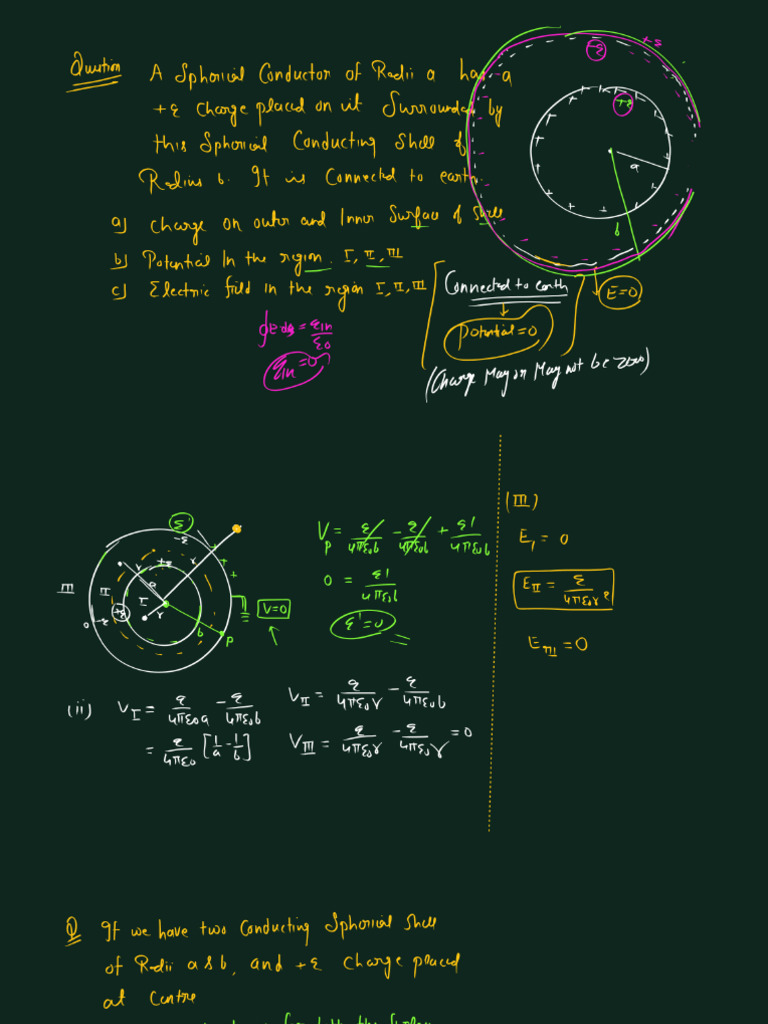 Question A Spherical Conductor of Radii a has a
+q charge placed on it Surrounded by
this Spherical Conducting Shell of
Radius b. It is Connected to earth.
a) charge on outer and Inner Surface of Shell
b) Potential In the region I, II, III
c) Electric field in the region I, II, III
-q
+q
+q
a
b
Connected to earth
E=0
Potential=0
(Charge May or May not be zero)
∮E ds = qin/ε0
qin=0
q'
-q
III
II
I
+q
+q
a
r
r
r
b
P
0
-q
V=0
V_P = q/4πε0b - q/4πε0b + q'/4πε0b
0 = q'/4πε0b
q'=0
(III)
E_I = 0
E_II = q/4πε0r²
E_III = 0
(ii) V_I = q/4πε0a - q/4πε0b V_II = q/4πε0r - q/4πε0b
= q/4πε0 [1/a - 1/b] V_III = q/4πε0r - q/4πε0r = 0
Q If we have two Conducting Spherical Shell
of Radii a & b, and +q charge placed
at Centre